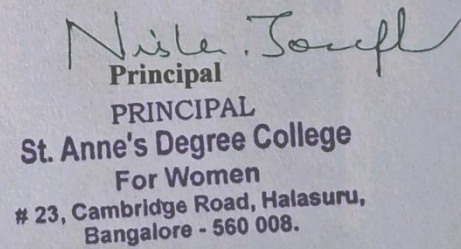 Nisha. Joseph
Principal
PRINCIPAL
St. Anne's Degree College
For Women
# 23, Cambridge Road, Halasuru,
Bangalore - 560 008.